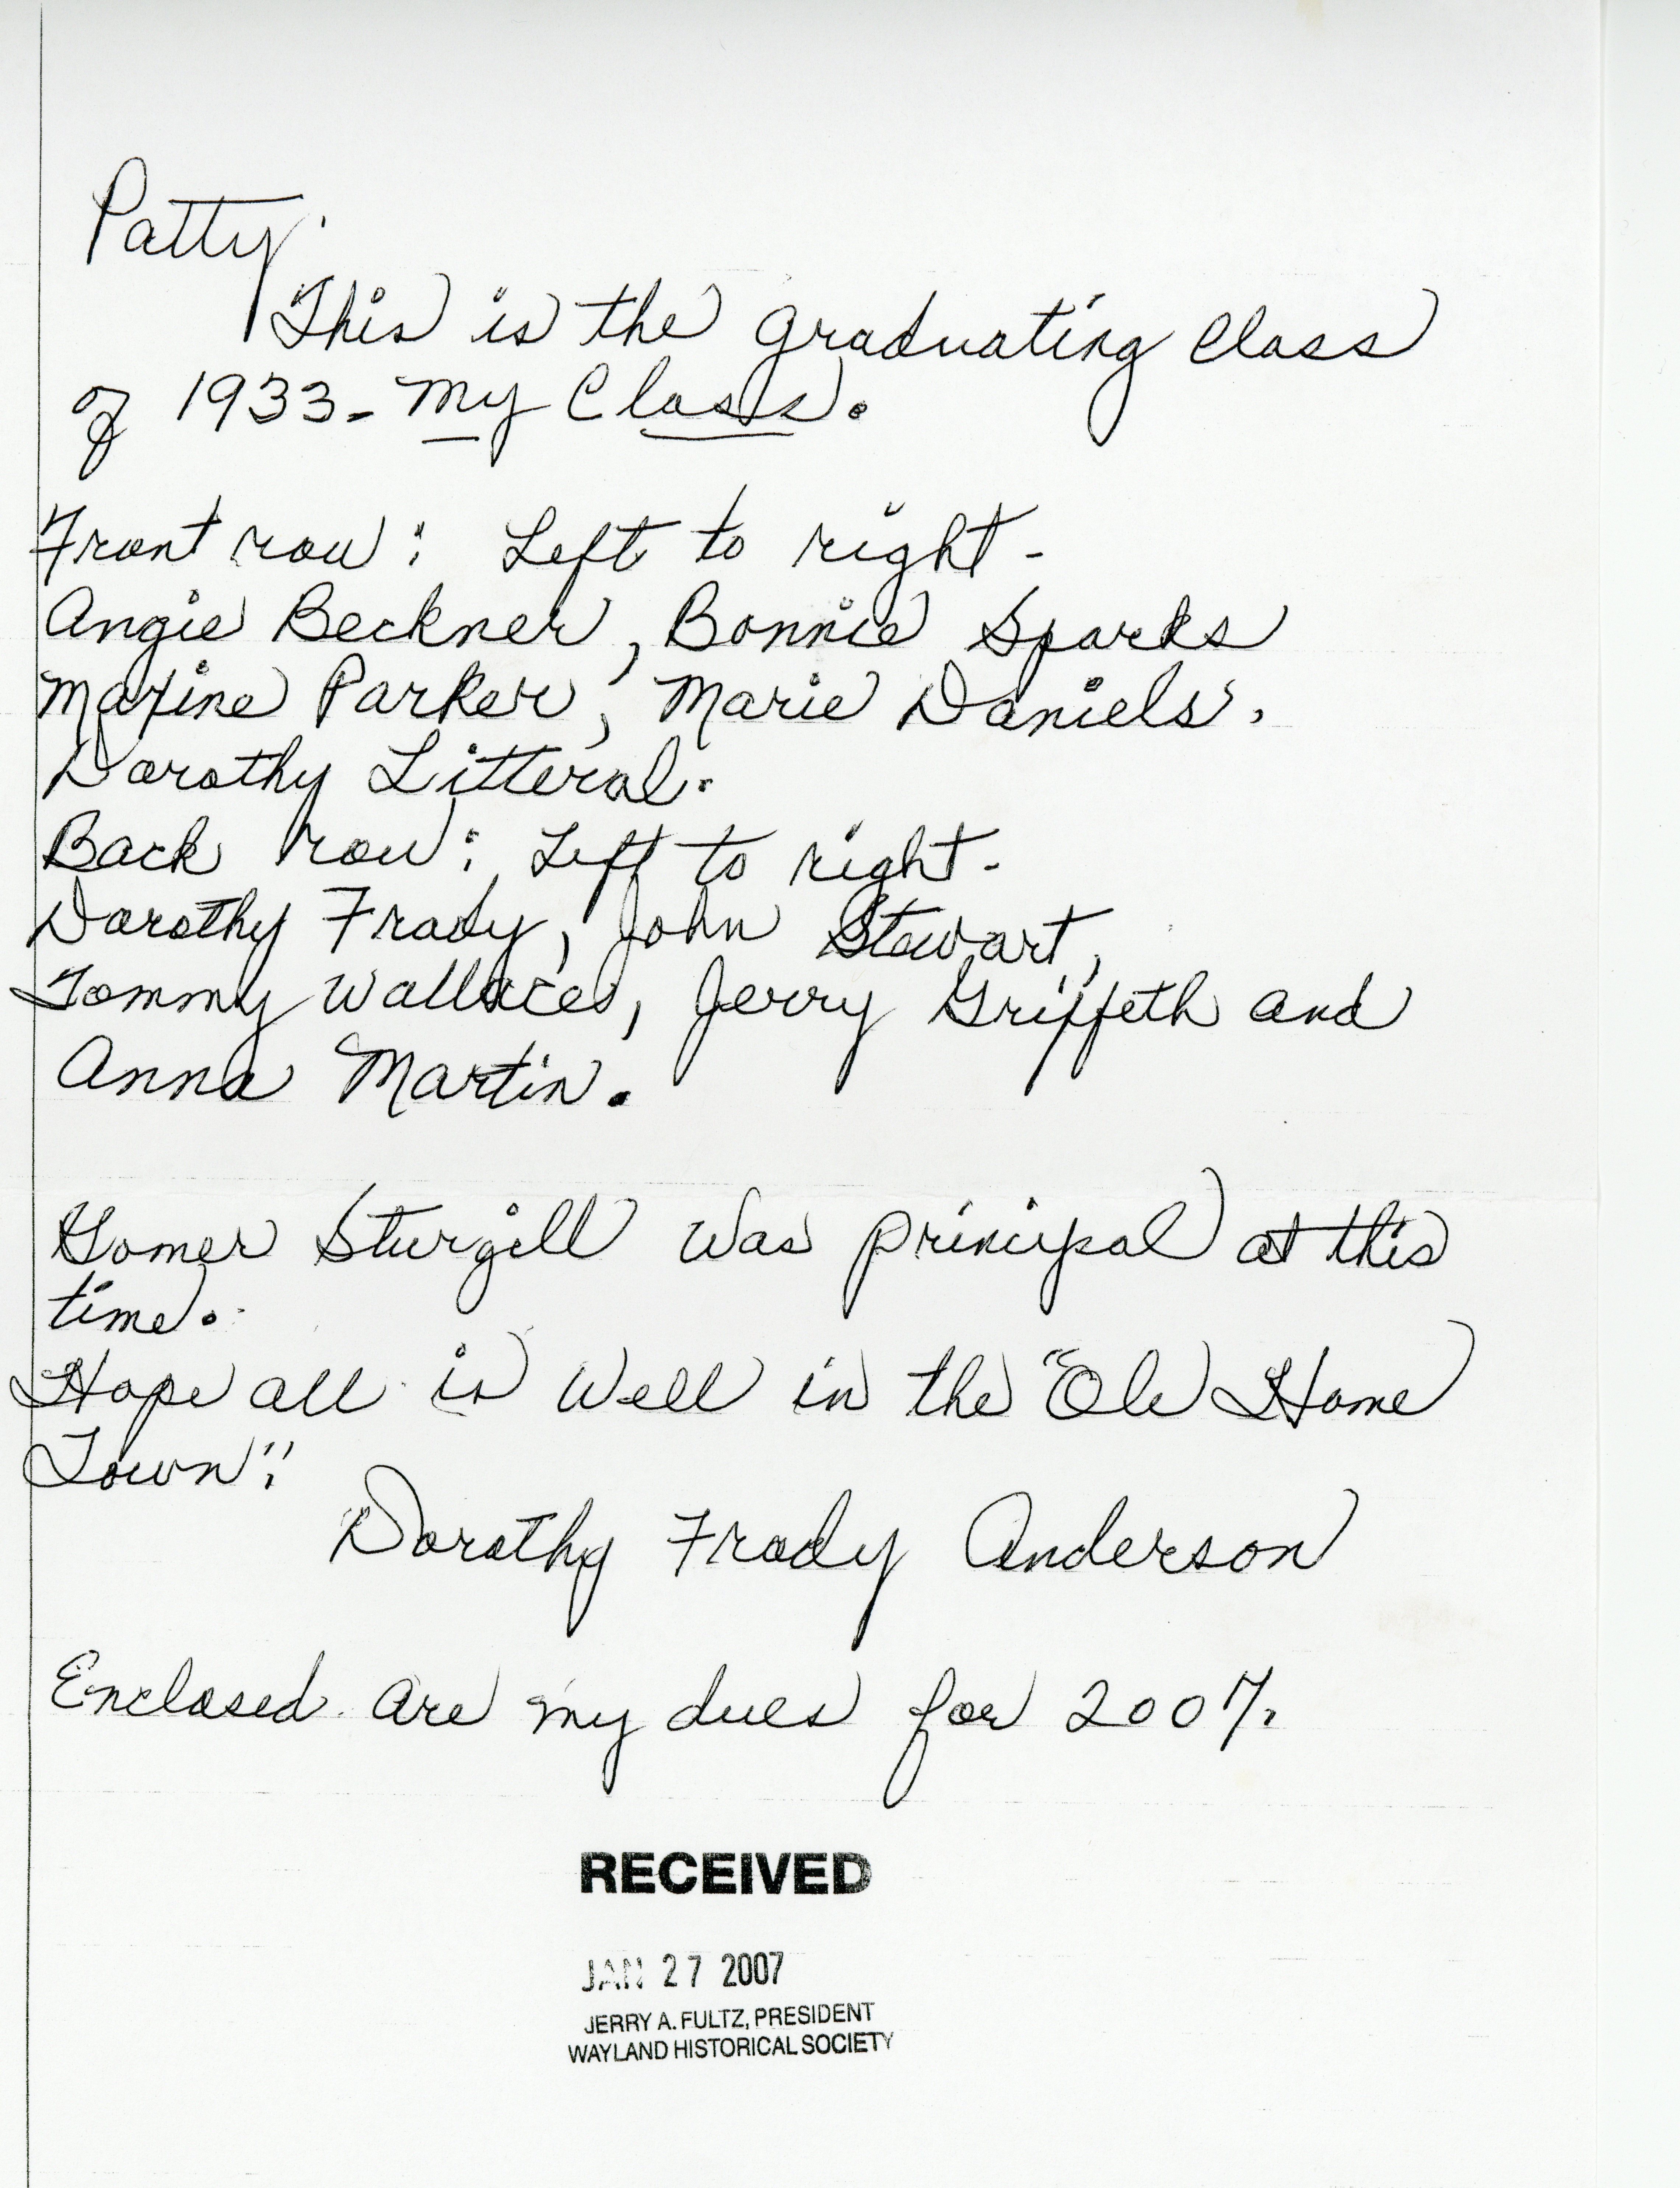 Patty.
This is the graduating class
of 1933 - My Class.
Front row: Left to right -
Angie Beckner, Bonnie Sparks
Maxine Parker, Marie Daniels,
Dorothy Litteral.
Back row: Left to right -
Dorothy Frady, John Stewart,
Tommy Wallace, Jerry Griffeth and
Anna Martin.
Gomer Sturgill was principal at this
time.
Hope all is well in the "Ole Home
Town".
Dorothy Frady Anderson
Enclosed are my dues for 2007.
RECEIVED
JAN 27 2007
JERRY A. FULTZ, PRESIDENT
WAYLAND HISTORICAL SOCIETY